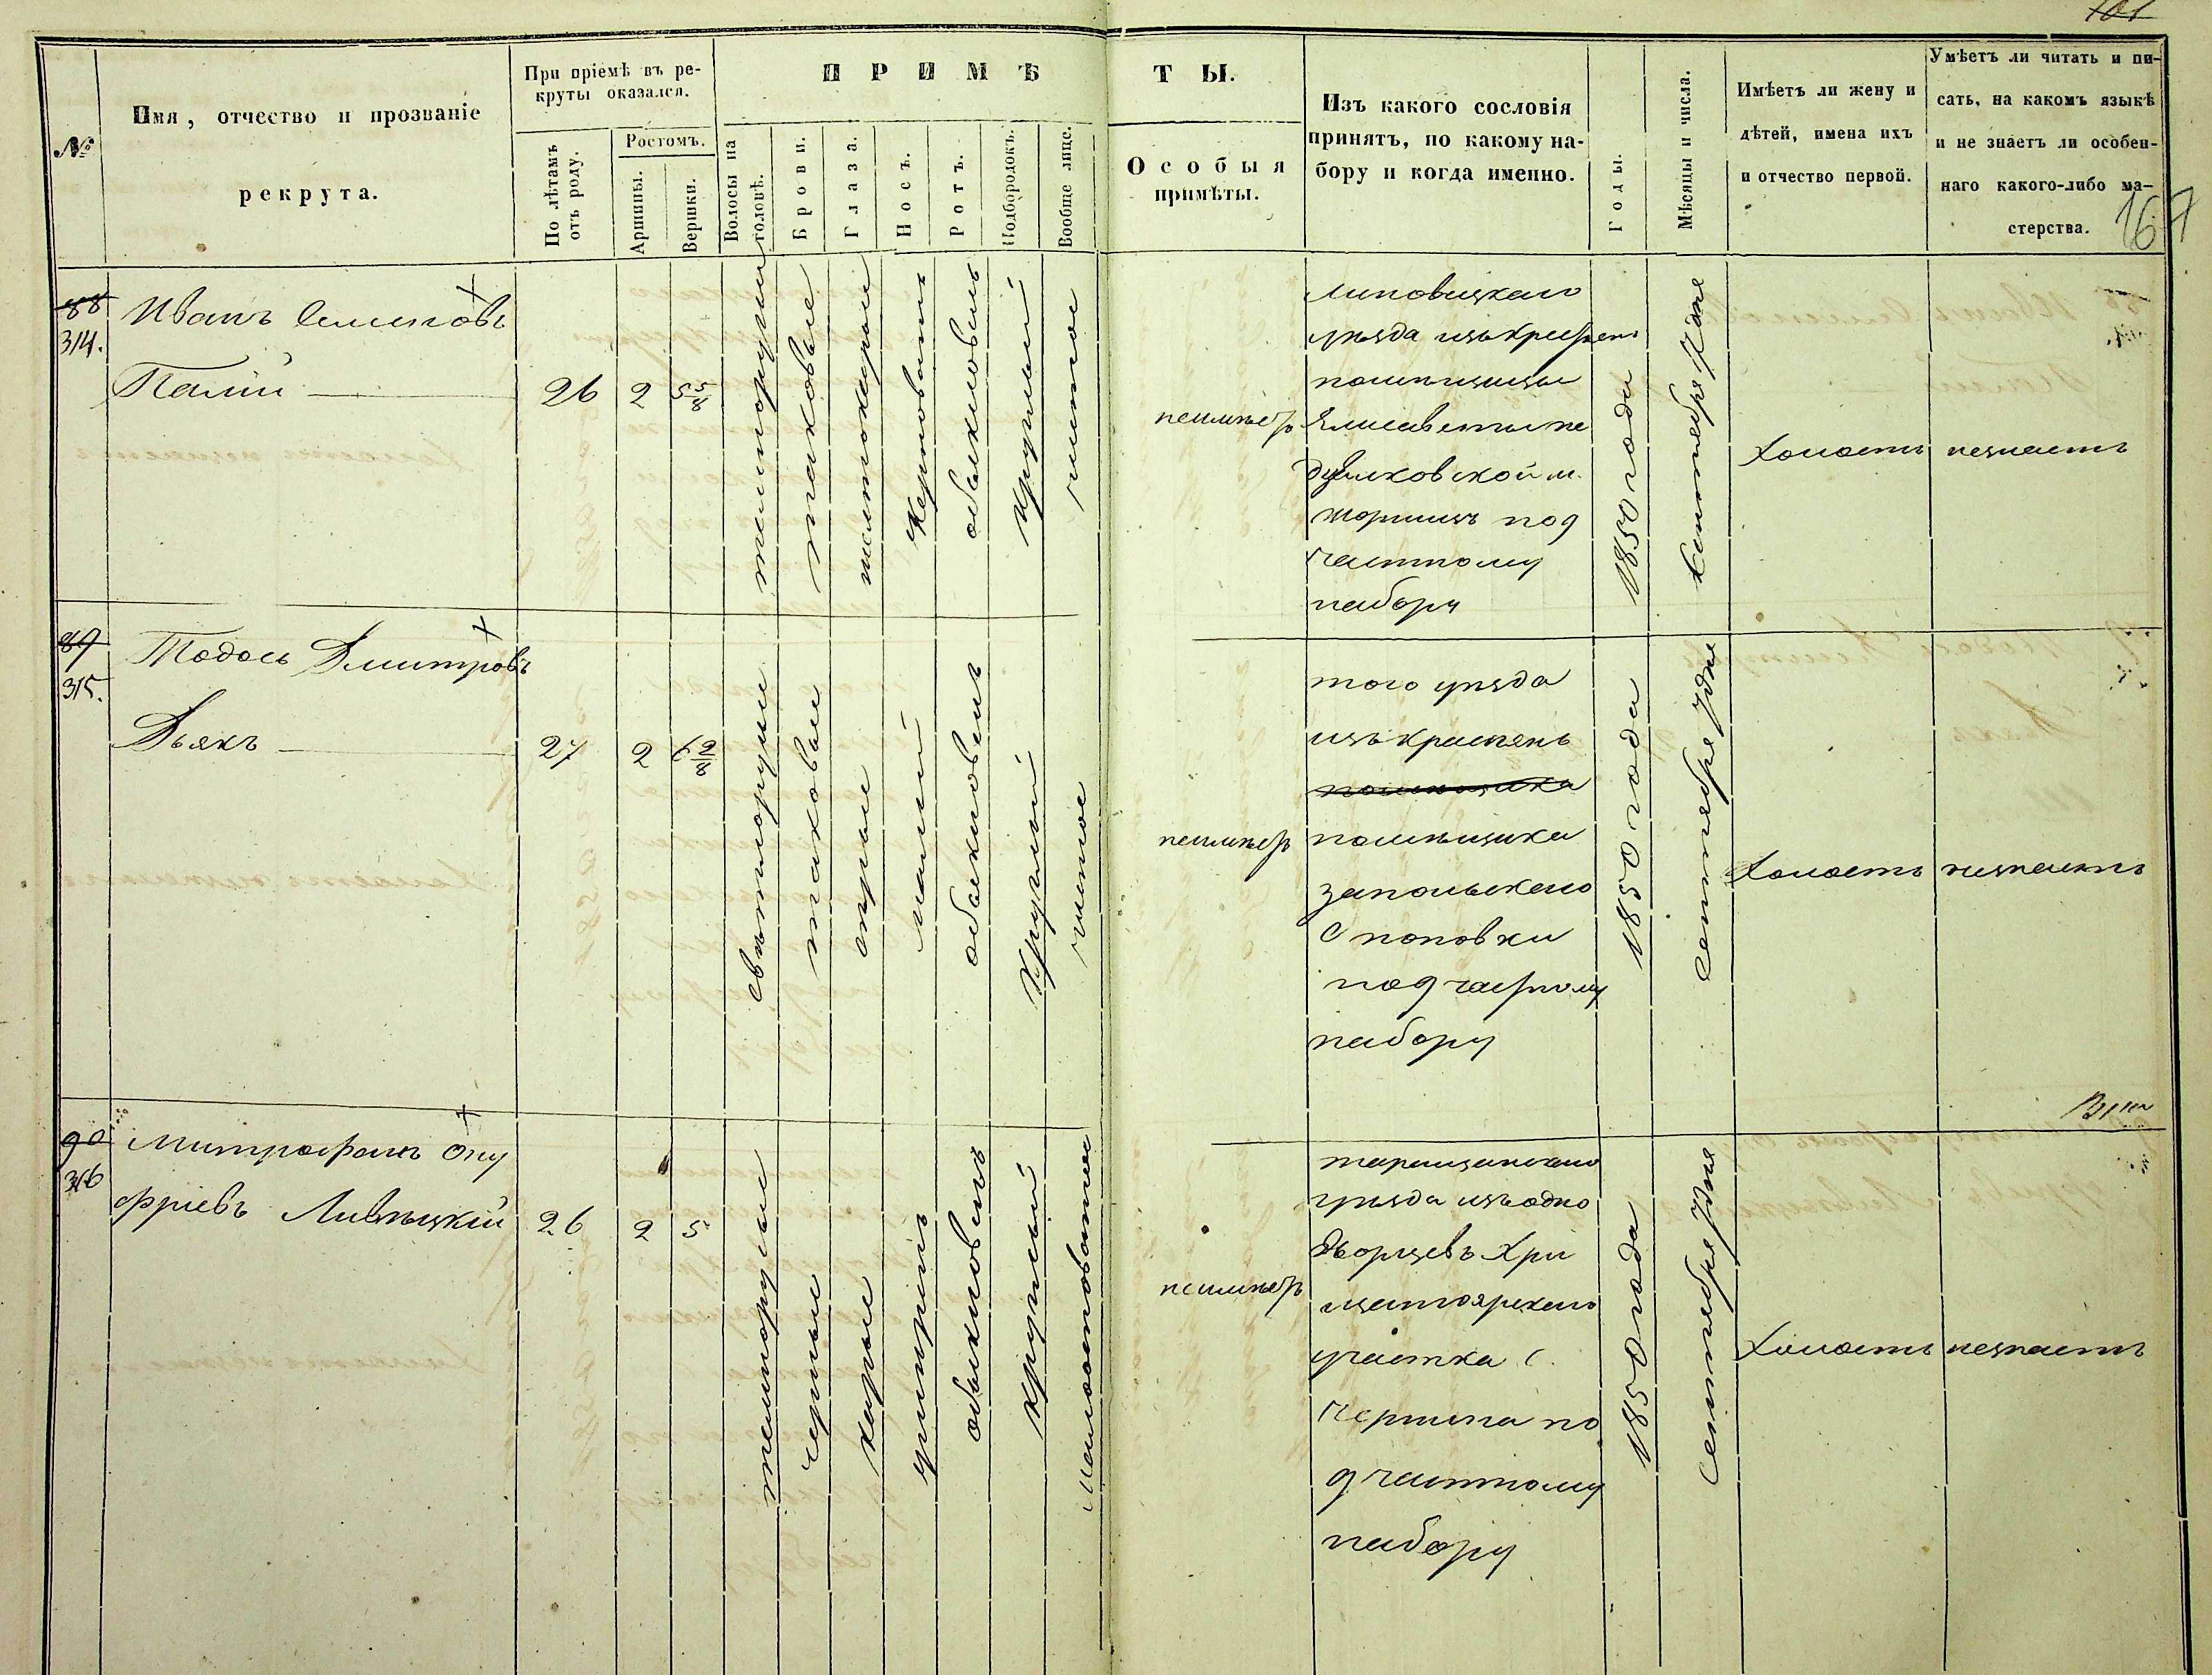 101
167
№
Имя, отчество и прозваніе
рекрута.
При пріемѣ въ ре-
круты оказался.
По лѣтамъ
отъ роду.
Ростомъ.
Аршины.
Вершки.
ПРИМѢТЫ.
Волосы на
головѣ.
Брови.
Глаза.
Носъ.
Ротъ.
Подбородокъ.
Вообще лице.
Особыя
примѣты.
Изъ какого сословія
принятъ, по какому на-
бору и когда именно.
Годы.
Мѣсяцы и числа.
Имѣетъ ли жену и
дѣтей, имена ихъ
и отчество первой.
Умѣетъ ли читать и пи-
сать, на какомъ языкѣ
и не знаетъ ли особен-
наго какого-либо ма-
стерства.
88
314.
Иванъ Семеновъ
Палій
26
2
5 5/8
темнорусыи
таковые
обыкновенъ
круглый
чистое
неимѣетъ
Липовецкаго
уѣзда изъ крестьянъ
помѣщицы
под
частному
набору
1850 года
Сентября
холостъ
незнаетъ
89
315.
Тодось Дмитровъ
Дьякъ
27
2
6 2/8
свѣтлорусые
таковые
сѣрые
малый
обыкновенъ
круглый
чистое
неимѣетъ
того уѣзда
изъ крестьянъ
помѣщика
помѣщика
Запольскаго
С поповки
под частному
набору
1850 года
Сентября 7 дня
холостъ
незнаетъ
90
316
Митрофанъ Ону
фріевъ Ливицкій
26
2
5
темнорусые
черные
карые
обыкновенъ
круглый
неимѣетъ
таращанскаго
уѣзда изъ одно
дворцевъ Хри
щатоярскаго
участка с.
Чернина по
д частному
набору
1850 года
Сентября 7 дня
холостъ
незнаетъ